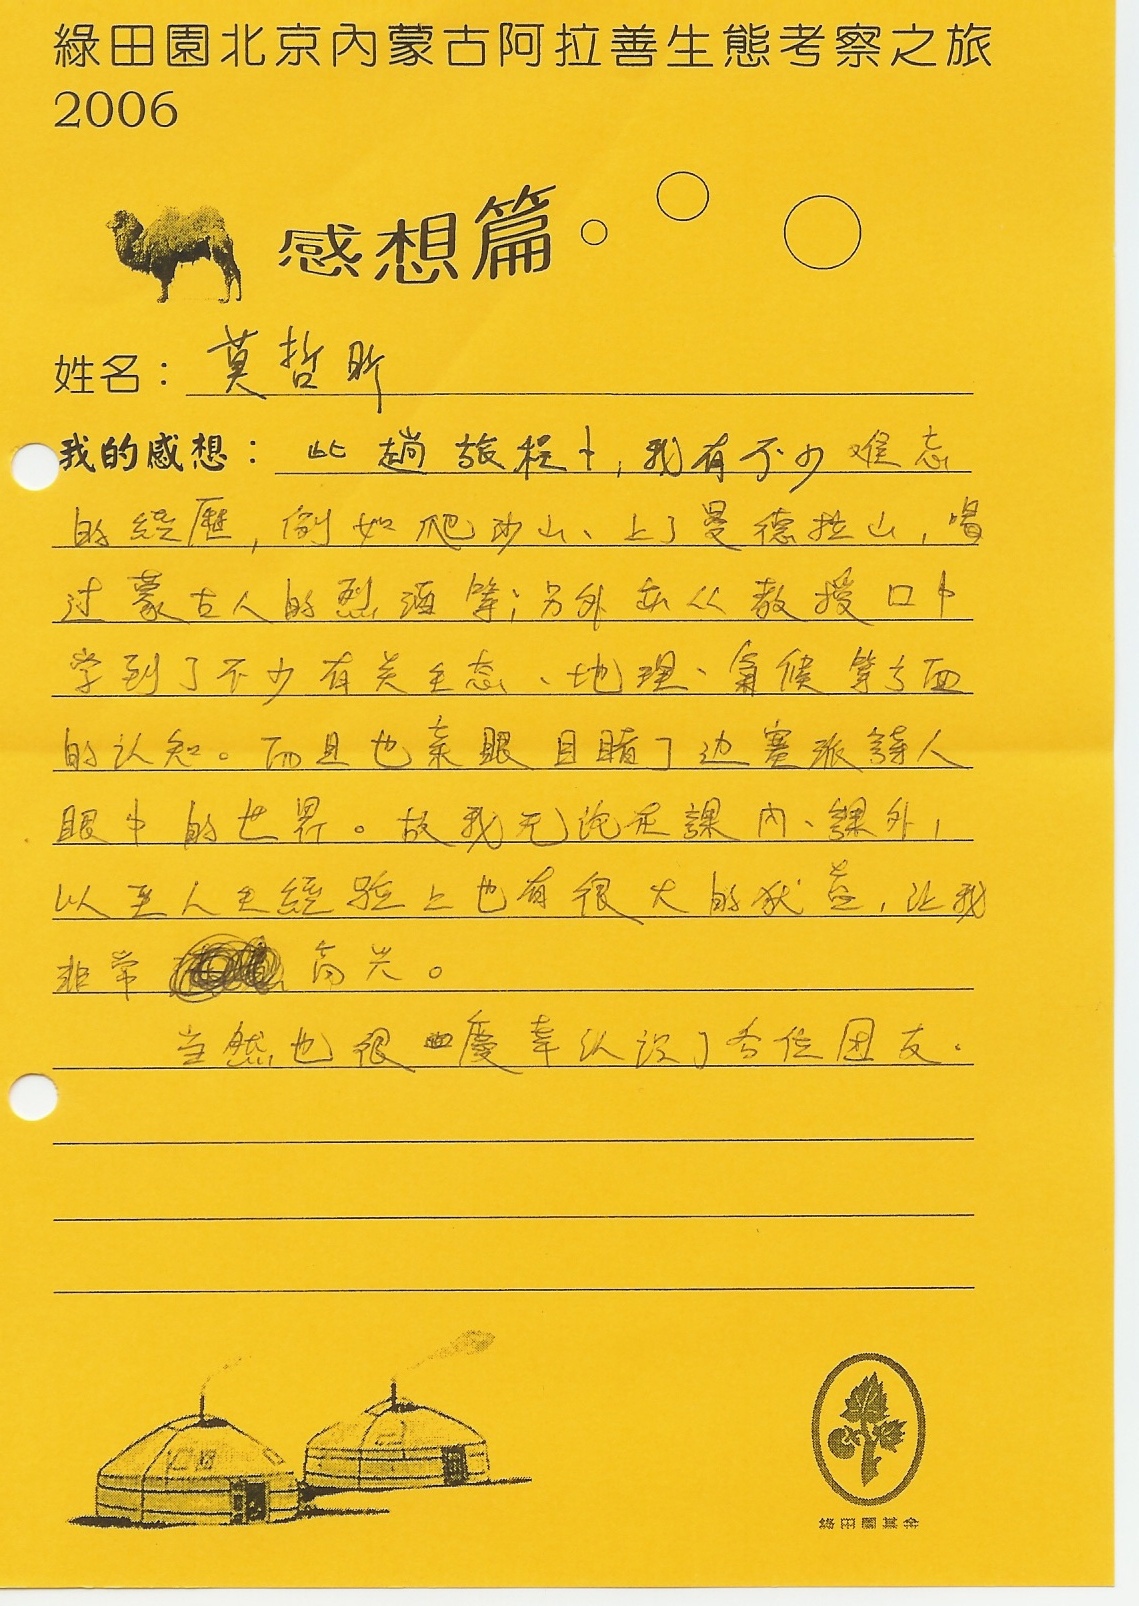 綠田園北京內蒙古阿拉善生態考察之旅
2006
感想篇
姓名：莫哲昕
我的感想：此趟旅程中，我有不少难忘
的经歷，例如爬沙山、上了曼德拉山，喝
过蒙古人的烈酒等；另外亦从教授口中
学到了不少有关生态、地理、氣候等方面
的认知。而且也亲眼目睹了边塞派詩人
眼中的世界。故我无论在課內、課外，
以至人生經验上也有很大的获益，让我
非常高兴。
当然也很慶幸认识了各位团友。
綠田園基金